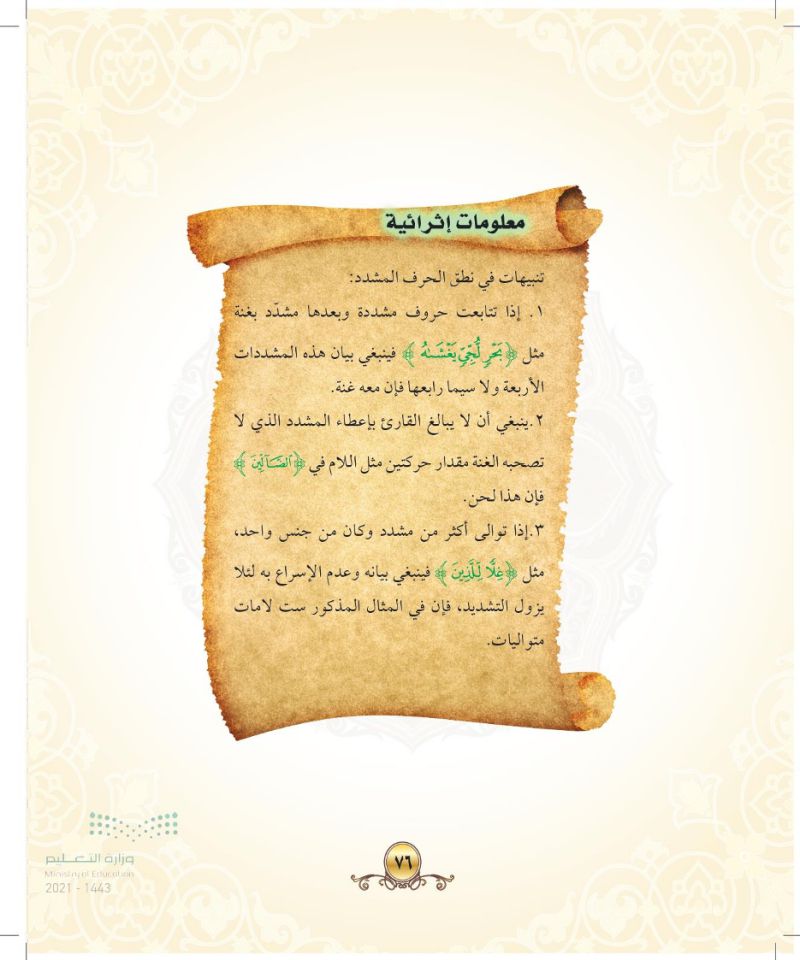 معلومات إثرائية
تنبيهات في نطق الحرف المشدد:
١. إذا تتابعت حروف مشددة وبعدها مشدّد بغنة
مثل ﴿بَحْرٍ لُّجِّيٍّ يَغْشَىٰهُ﴾ فينبغي بيان هذه المشددات
الأربعة ولا سيما رابعها فإن معه غنة.
٢.ينبغي أن لا يبالغ القارئ بإعطاء المشدد الذي لا
تصحبه الغنة مقدار حركتين مثل اللام في ﴿الضَّآلِّينَ﴾
فإن هذا لحن.
٣.إذا توالى أكثر من مشدد وكان من جنس واحد،
مثل ﴿غِلًّا لِّلَّذِينَ﴾ فينبغي بيانه وعدم الإسراع به لئلا
يزول التشديد، فإن في المثال المذكور ست لامات
متواليات.
وزارة التعليم
Ministry of Education
2021 - 1443
٧٦